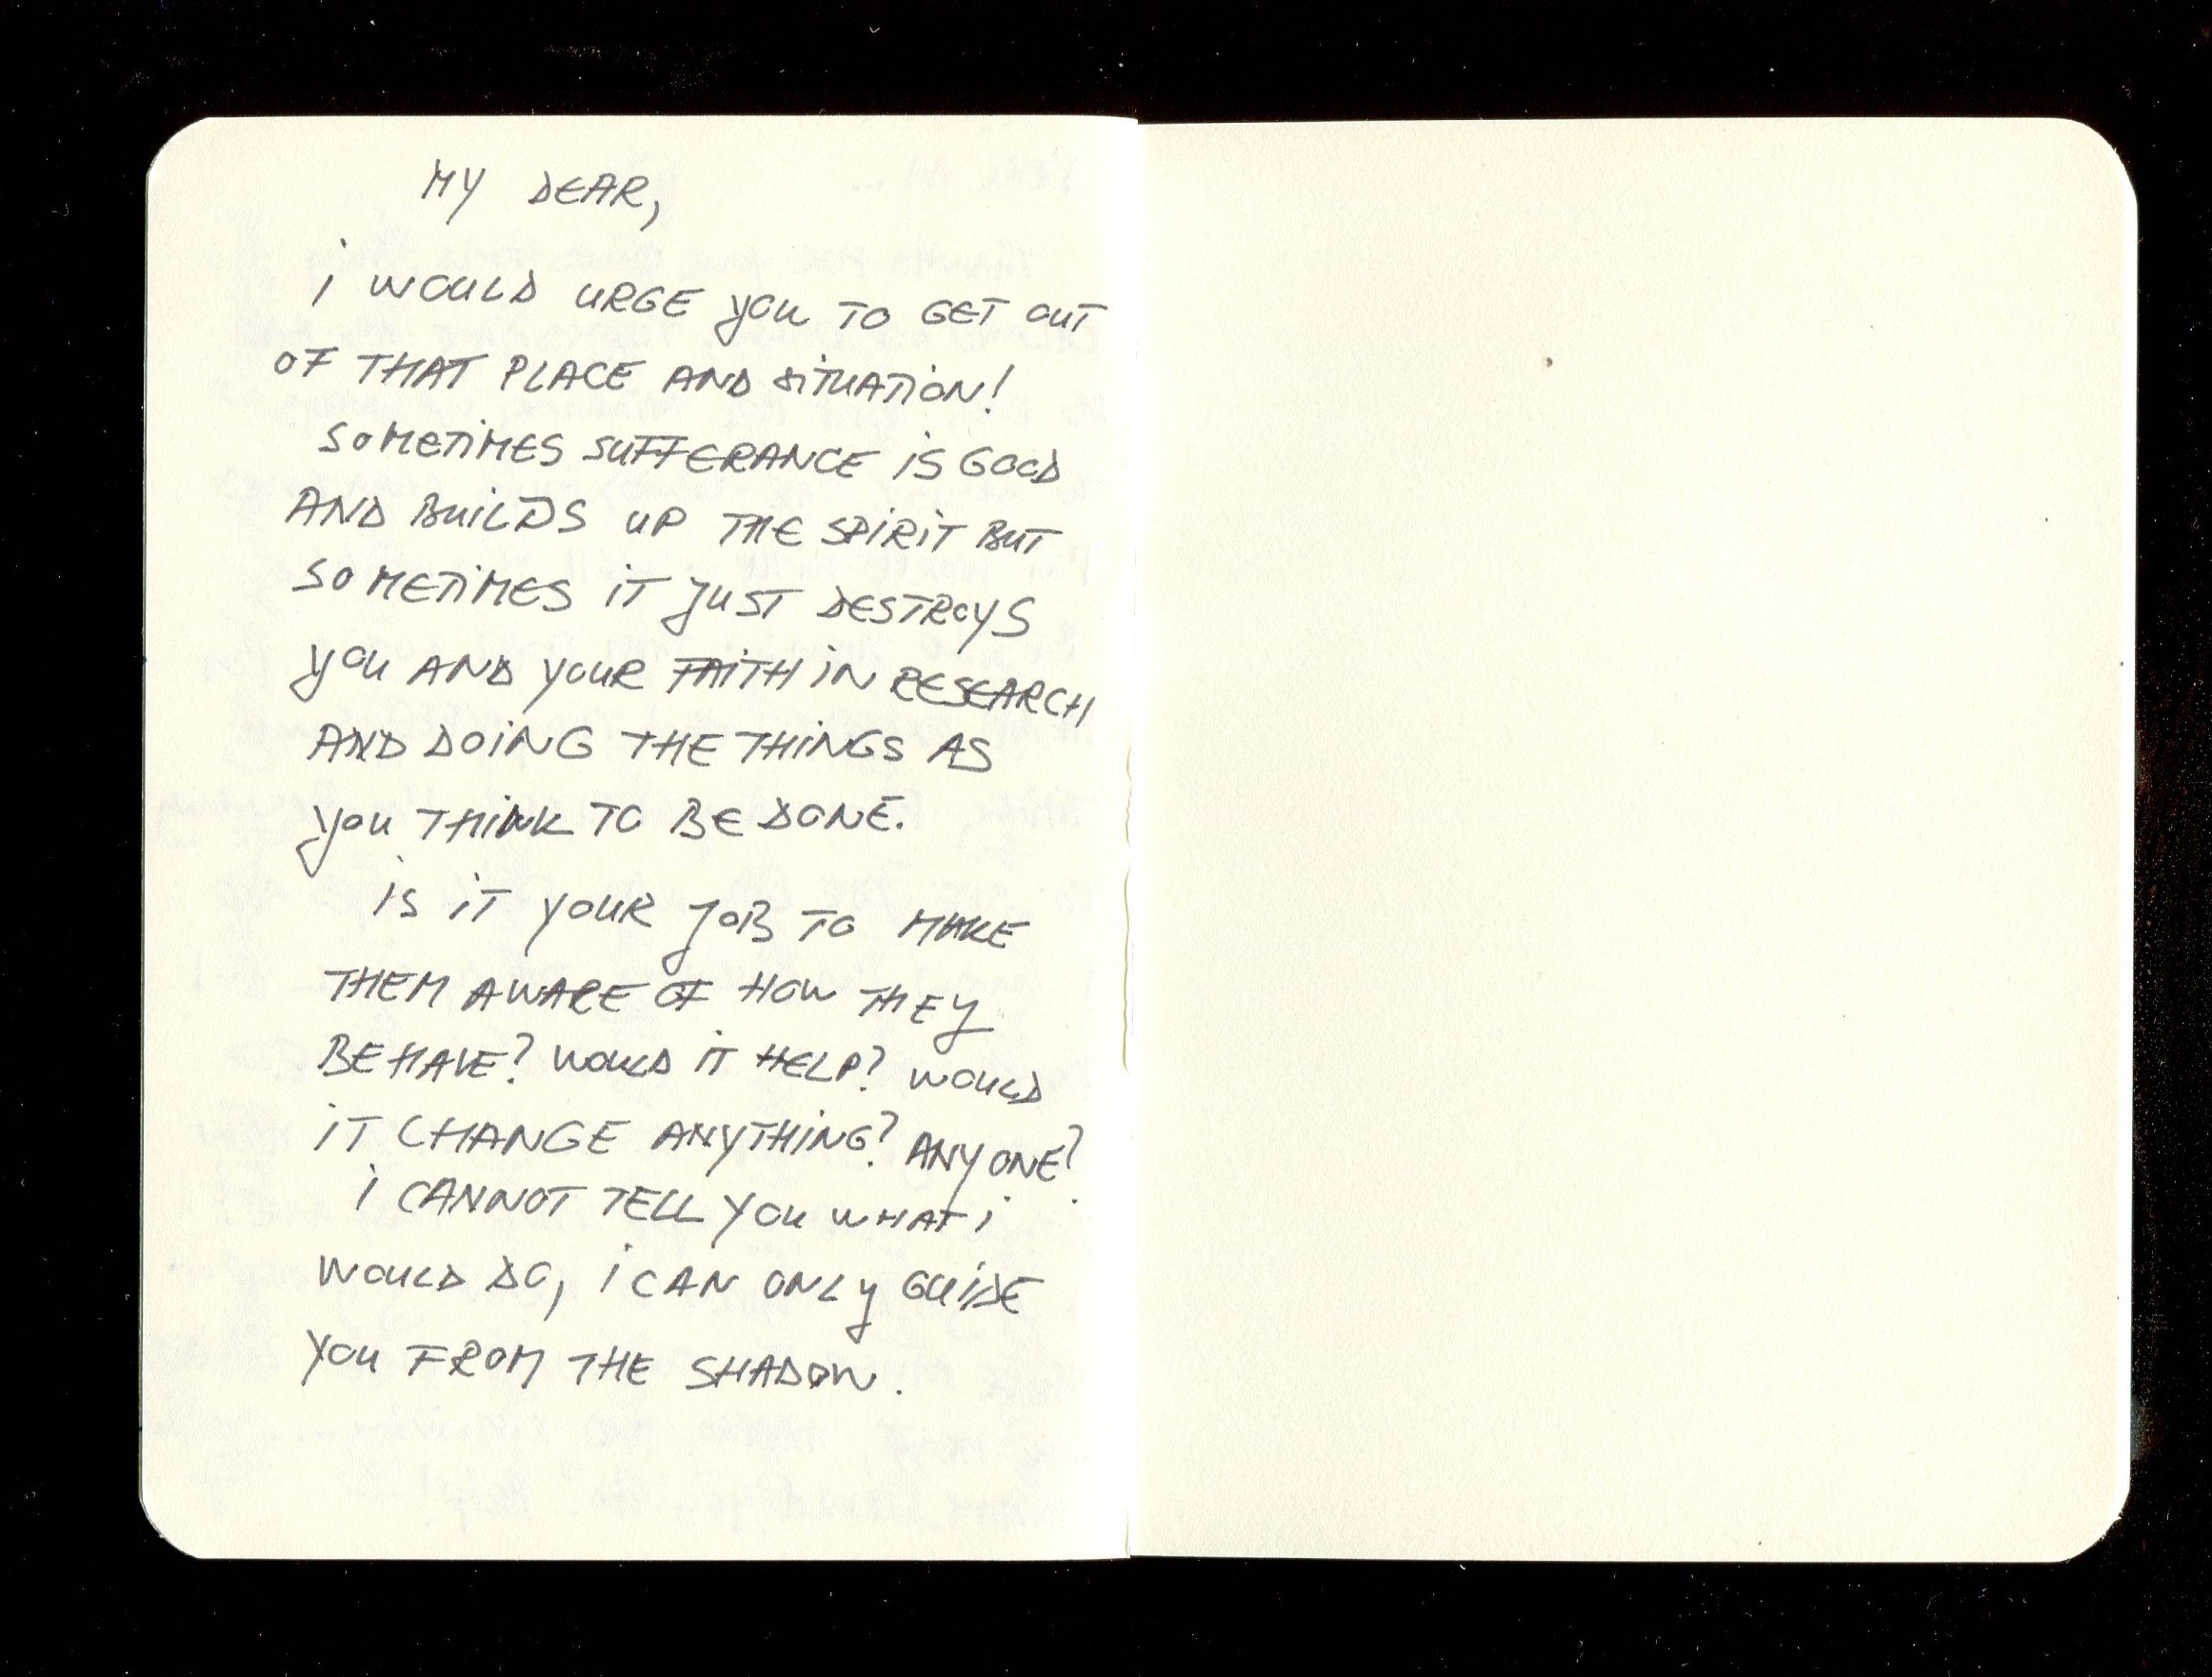 MY DEAR,
i WOULD URGE you TO GET OUT
OF THAT PLACE AND SiTUATiON!
SOMETiMES SUFFERANCE iS GOOD
AND BUiLDS UP THE SPiRiT BUT
SOMETiMES iT JUST DESTROYS
you AND YOUR FAiTH iN RESEARCH
AND DOiNG THE THiNGS AS
you THiNK TO BE DONE.
iS iT YOUR JOB TO MAKE
THEM AWARE OF HOW THEY
BEHAVE? WOULD iT HELP? WOULD
iT CHANGE ANYTHiNG? ANYONE?
i CANNOT TELL YOU WHAT i
WOULD DO, i CAN ONLY GUiDE
YOU FROM THE SHADOW.